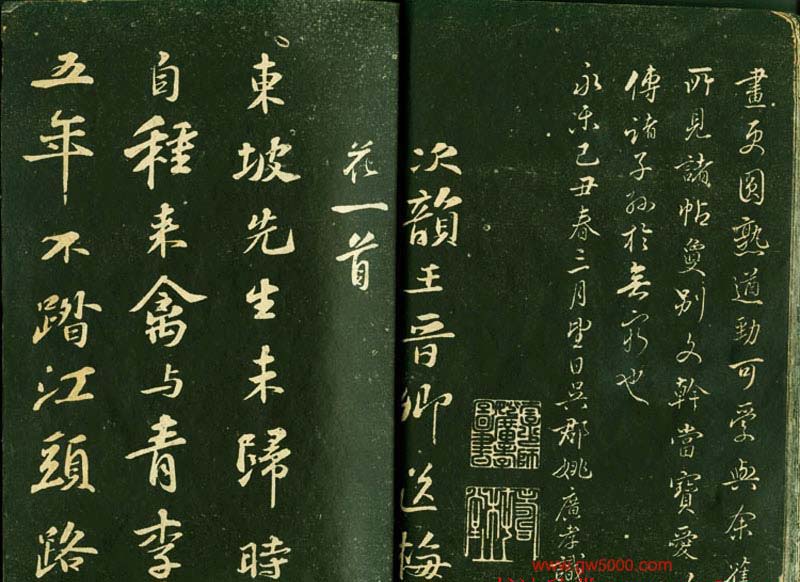 畫更圓熟遒勁可愛與余舊
所見諸帖夐別文幹當寶愛
傳諸子孫於無窮也
永樂己丑春三月望日吳郡姚廣孝識
次韻王晉卿送梅
花一首
東坡先生未歸時
自種来禽与青李
五年不踏江頭路
www.gw5000.com